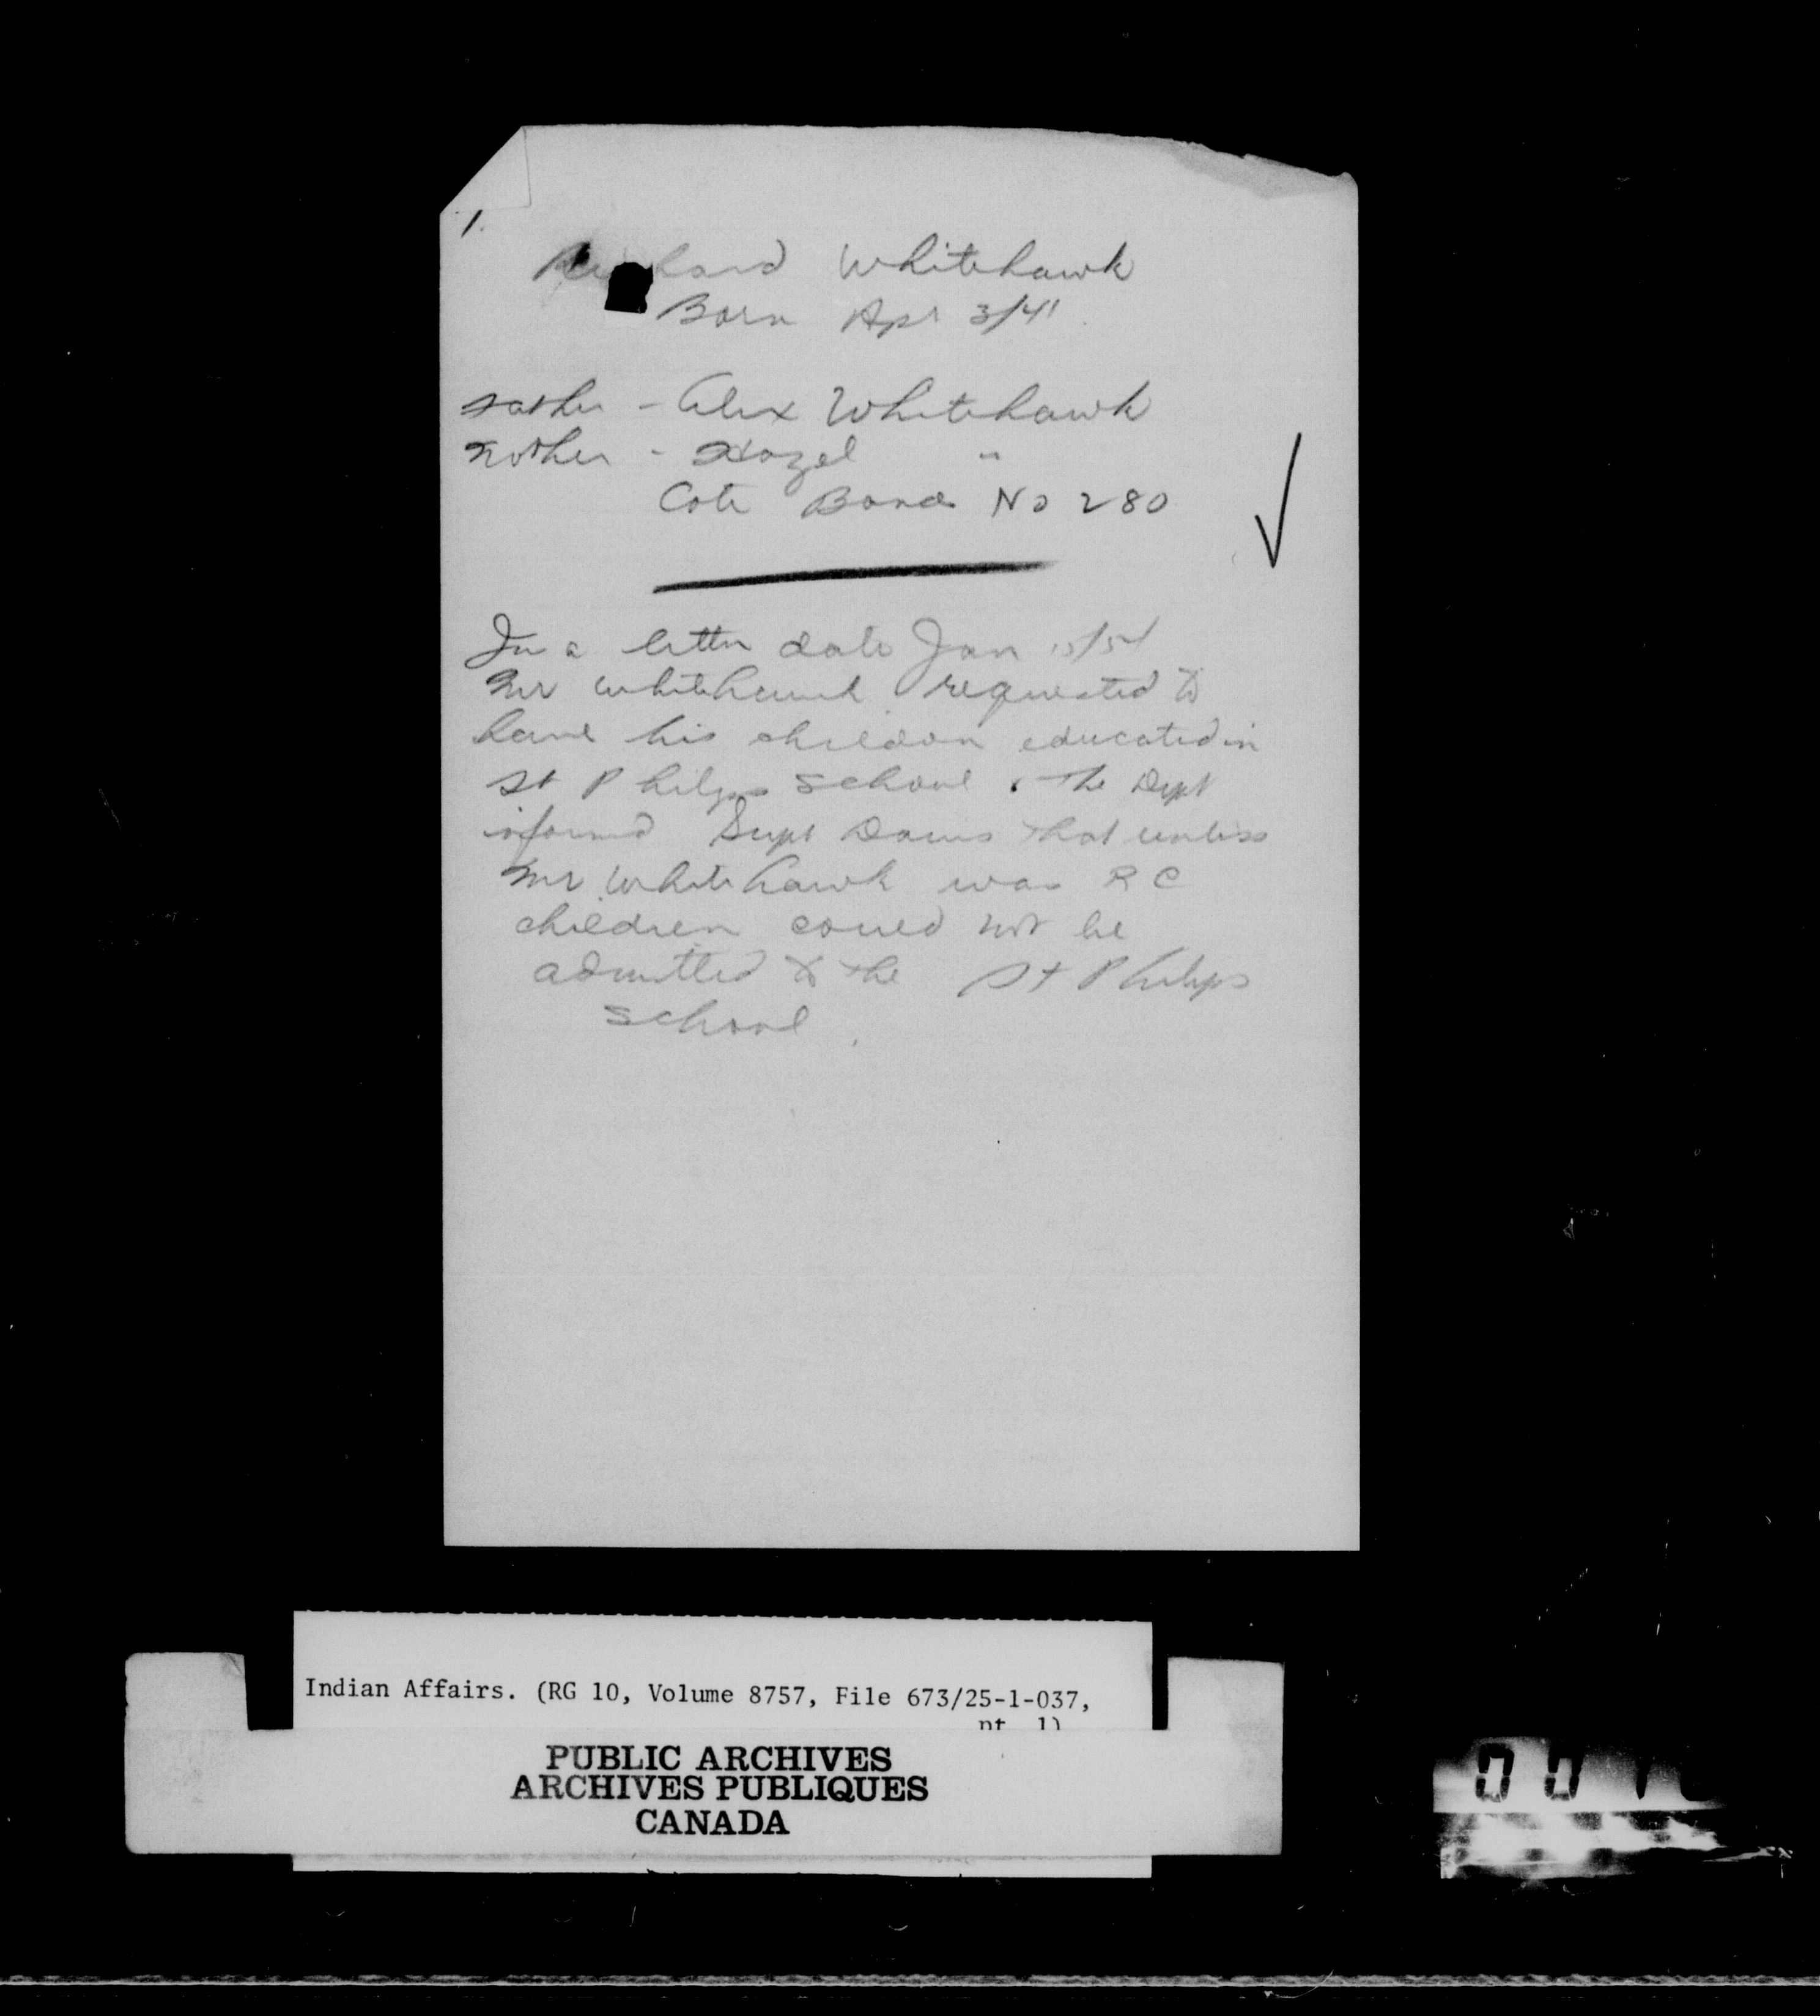 1.
Richard Whitehawk
Born Apr 3/41
Father - Alex Whitehawk
Mother - Hazel "
Cote Band No 280
In a letter date Jan 15/54
Mr Whitehawk requested to
have his children educated in
St Philips School. The Dept
informed Supt Daws that unless
Mr Whitehawk was RC
children could not be
admitted to the St Philips
School.
Indian Affairs. (RG 10, Volume 8757, File 673/25-1-037,
pt. 1)
PUBLIC ARCHIVES
ARCHIVES PUBLIQUES
CANADA